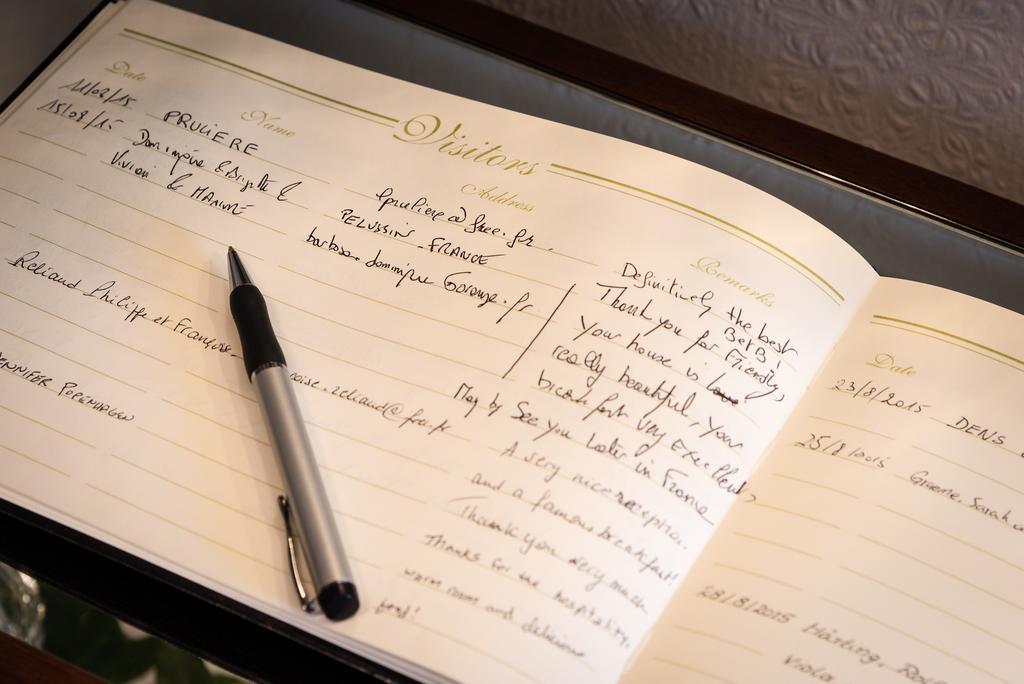 Visitors
Date
Name
Address
Remarks
11/08/15
15/08/15
PRULIERE
Dominique & Brigitte &
Vivian &
pruliere@free.fr.
PELUSSIN FRANCE
barbosa.dominique
Definitively the best
BetB!
Thank you for Friendly,
Your house is
really beautiful, Your
breakfast very Excellent,
May by See you Later in France
Reliaud Philippe et Françoise
oise.reliaud@free.fr
A very nice
and a famous breakfast!
Thank you very much
JENNIFER
Thanks for the hospitality,
warm room and delicious
food!
Date
23/8/2015 DENS
25/8/2015 Sarah
28/8/2015
Viola